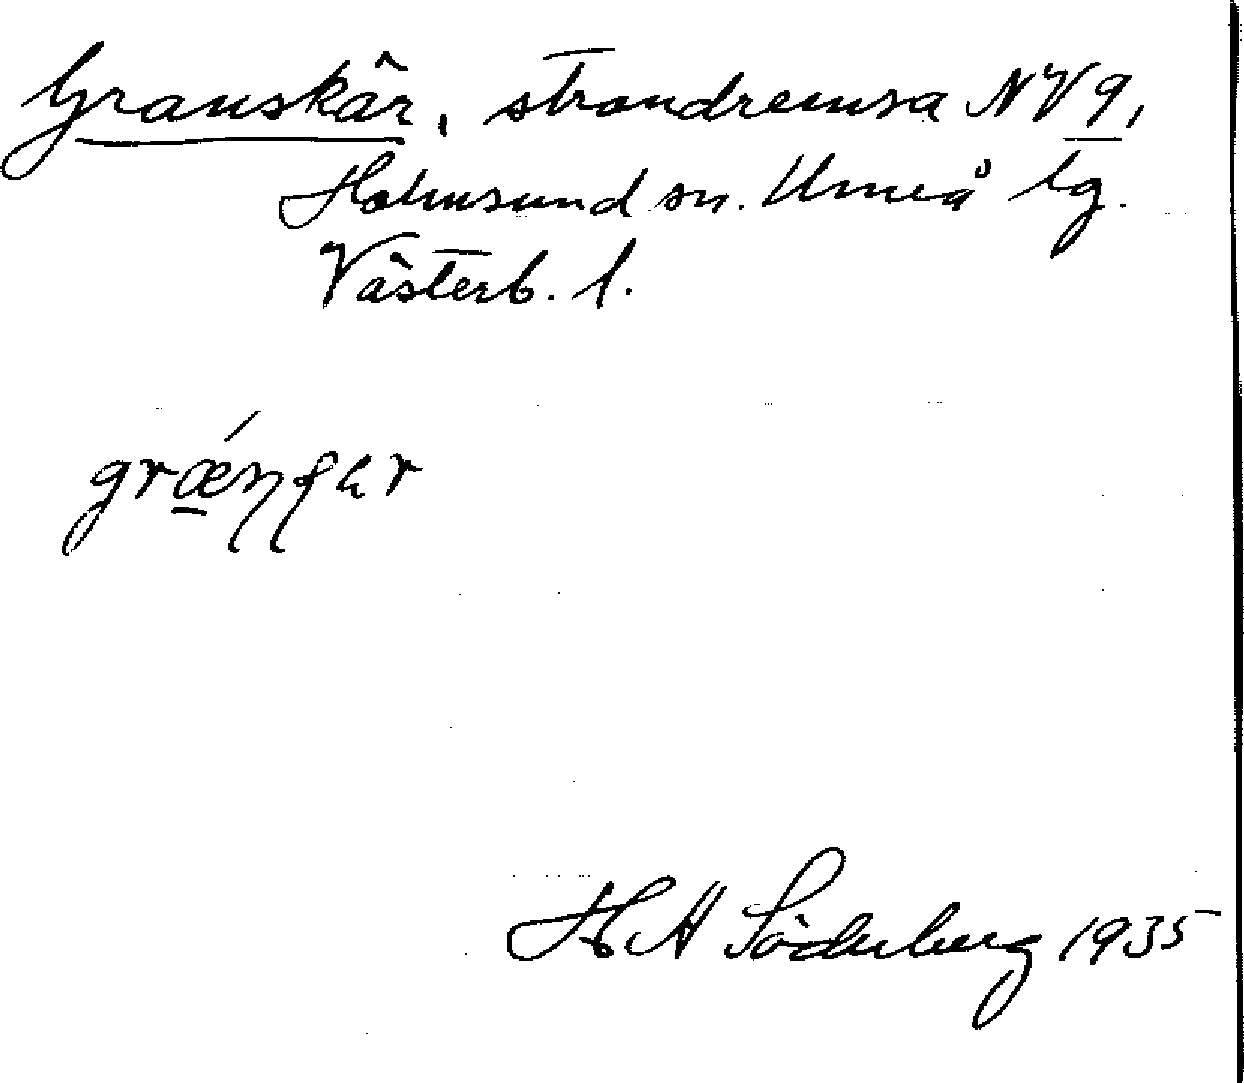 Granskär, strandremsa NV 9,
Holmsund sn. Umeå lg.
Västerb. l.
H A Söderberg 1935